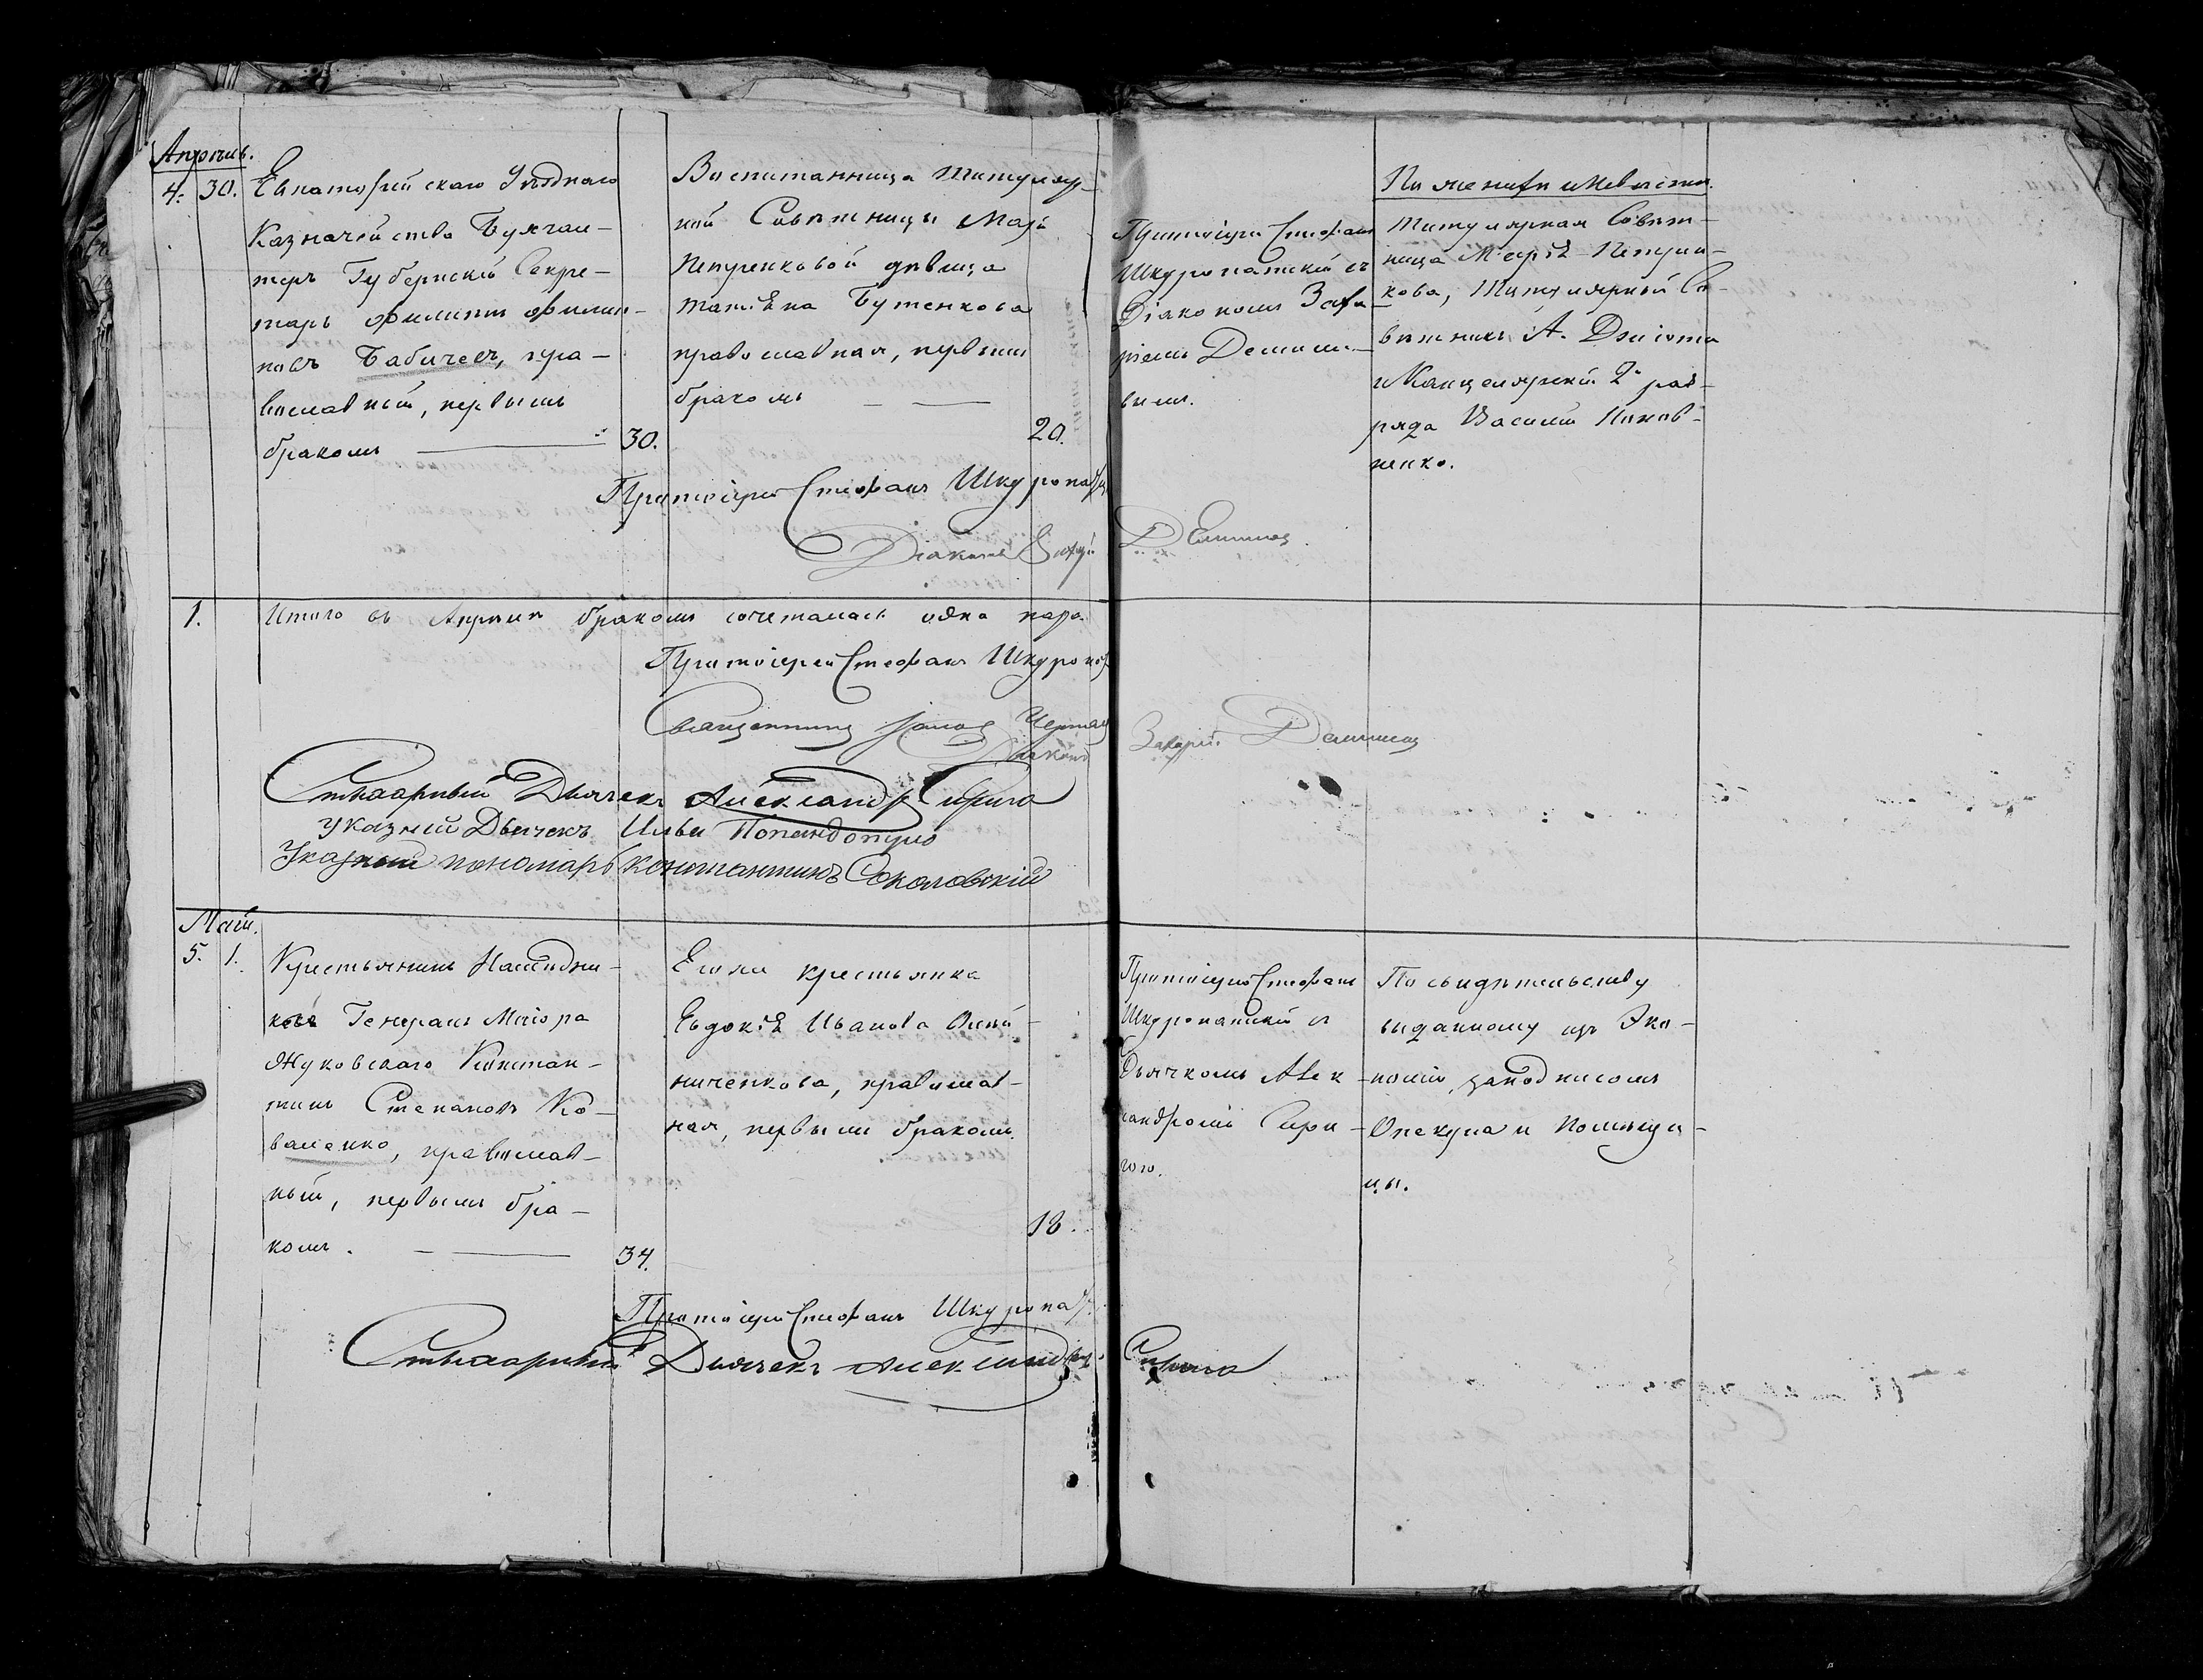 Апрѣль.
4. 30. Евпаторійскаго Уѣзднаго
Казначейства Бухгал-
теръ Губернскій Секре-
тарь Филиппъ Филип-
повъ Бабичевъ, пра-
вославный, первымъ
бракомъ 30.
Воспитанница Титуляр-
ной Совѣтницы Маріи
Петренковой дѣвица
Татіана Бутенкова
православная, первымъ
бракомъ 20.
Протоіерей Стефанъ
Шкуропатскій съ
Діакономъ Заха-
ріемъ Демими-
вымъ.
По женихѣ и невѣстѣ.
Титулярная Совѣт-
ница Марія Петрен-
кова, Титулярный Со-
вѣтникъ А.
и Канцелярскій 2го раз-
ряда Василій
ненко.
Протоіерей Стефанъ Шкуропат
Діаконъ Захарій
1. Итого въ Апрѣлѣ бракомъ сочеталась одна пара.
Протоіерей Стефанъ Шкуропат
Священникъ
Діаконъ Захарій
Стихарный Дьячекъ Александръ Сирига
Указный Дьячекъ Илья Попандопуло
Указный пономарь Константинъ Соколовскій
Май.
5. 1. Крестьянинъ Наслѣдни-
ковъ Генералъ Маіора
Жуковскаго Констан-
тинъ Степановъ Ко-
валенко, православ-
ный, первымъ бра-
комъ. 34.
Его же крестьянка
Евдокія Иванова
ниченкова, православ-
ная, первымъ бракомъ.
18.
Протоіерей Стефанъ
Шкуропатскій съ
Дьячкомъ Алек-
сандромъ Сири-
гою.
По свидѣтельству
выданному изъ Эко-
номіи, за подписомъ
Опекуна и Помѣщи-
цы.
Протоіерей Стефанъ Шкуропат
Стихарный Дьячекъ Александръ Сирига